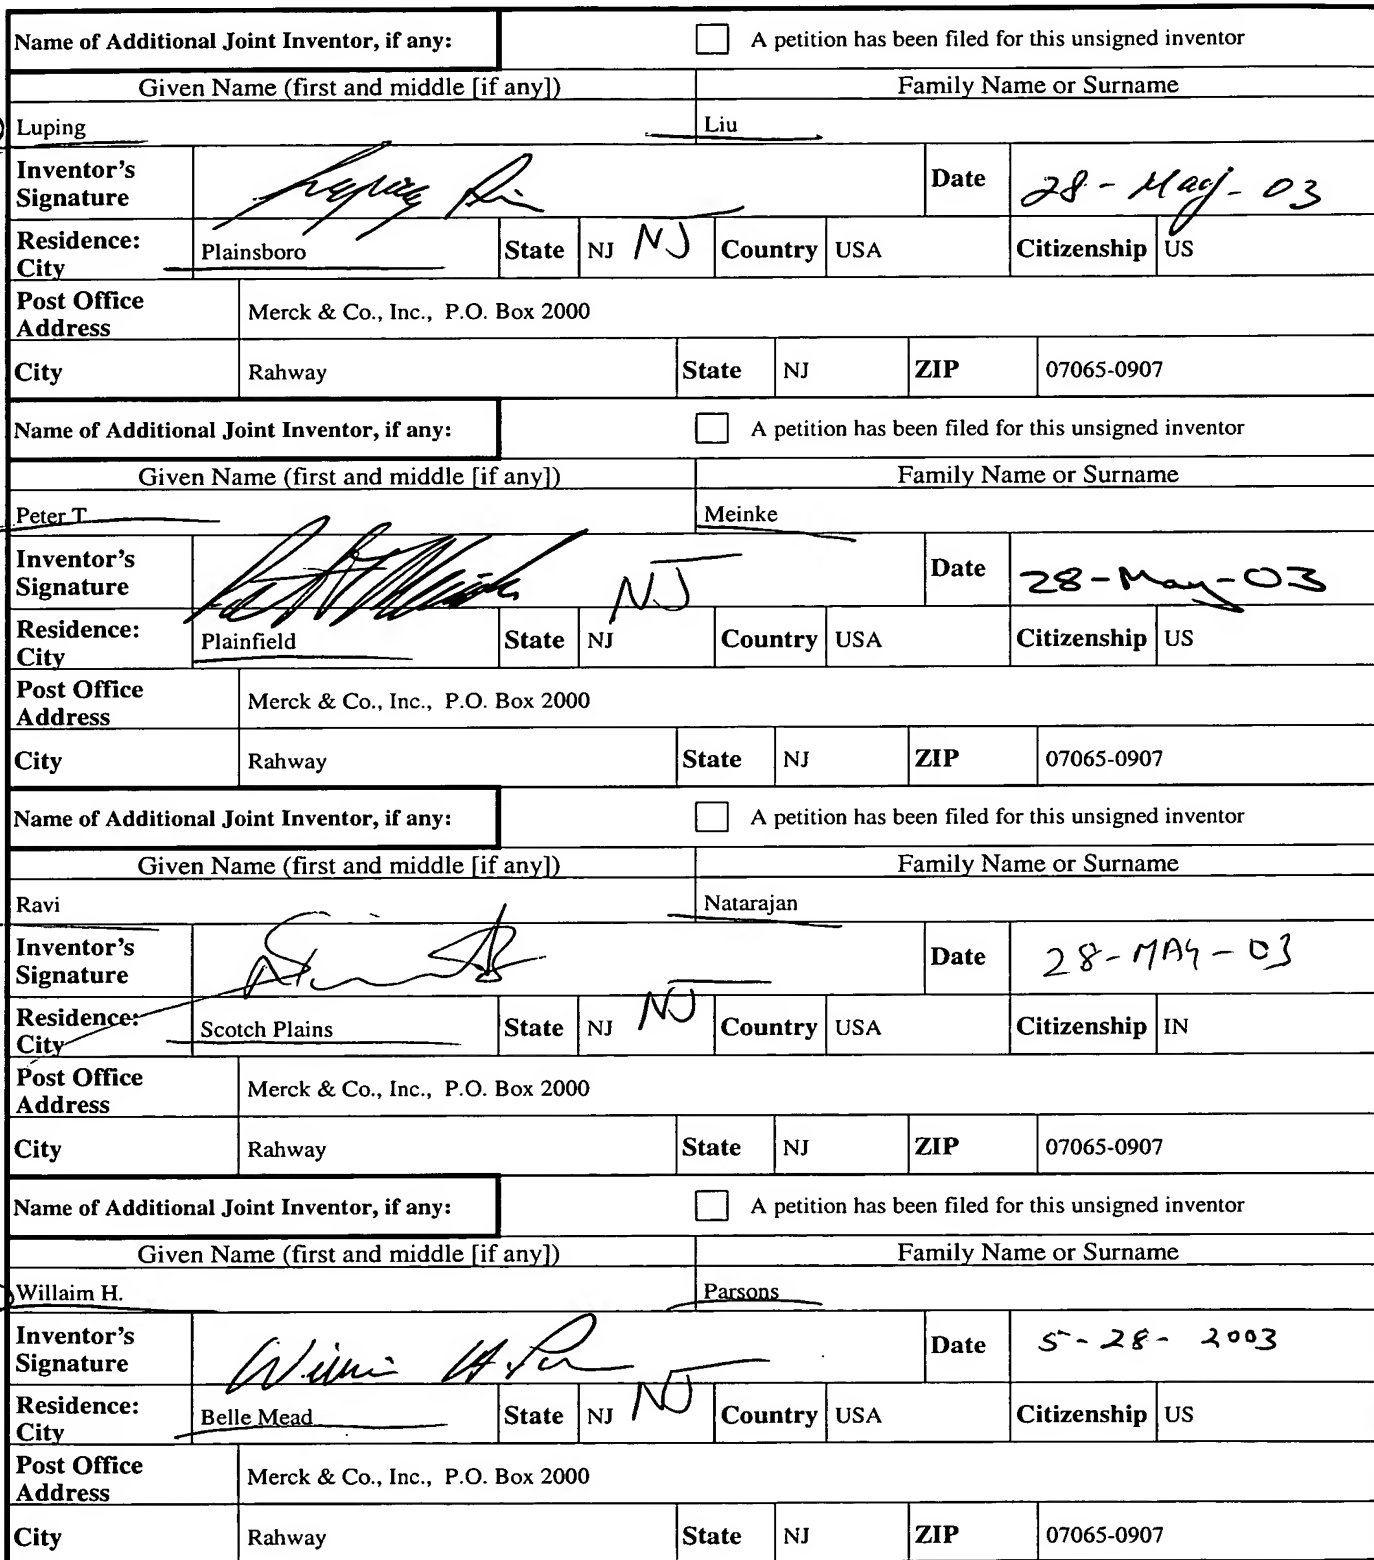 Name of Additional Joint Inventor, if any: A petition has been filed for this unsigned inventor
Given Name (first and middle [if any]) Family Name or Surname
Luping Liu
Inventor's Signature Luping Liu Date 28-May-03
Residence: City Plainsboro State NJ NJ Country USA Citizenship US
Post Office Address Merck & Co., Inc., P.O. Box 2000
City Rahway State NJ ZIP 07065-0907
Name of Additional Joint Inventor, if any: A petition has been filed for this unsigned inventor
Given Name (first and middle [if any]) Family Name or Surname
Peter T Meinke
Inventor's Signature NJ Date 28-May-03
Residence: City Plainfield State NJ Country USA Citizenship US
Post Office Address Merck & Co., Inc., P.O. Box 2000
City Rahway State NJ ZIP 07065-0907
Name of Additional Joint Inventor, if any: A petition has been filed for this unsigned inventor
Given Name (first and middle [if any]) Family Name or Surname
Ravi Natarajan
Inventor's Signature Date 28-MAY-03
Residence: City Scotch Plains State NJ NJ Country USA Citizenship IN
Post Office Address Merck & Co., Inc., P.O. Box 2000
City Rahway State NJ ZIP 07065-0907
Name of Additional Joint Inventor, if any: A petition has been filed for this unsigned inventor
Given Name (first and middle [if any]) Family Name or Surname
Willaim H. Parsons
Inventor's Signature Date 5-28-2003
Residence: City Belle Mead State NJ NJ Country USA Citizenship US
Post Office Address Merck & Co., Inc., P.O. Box 2000
City Rahway State NJ ZIP 07065-0907